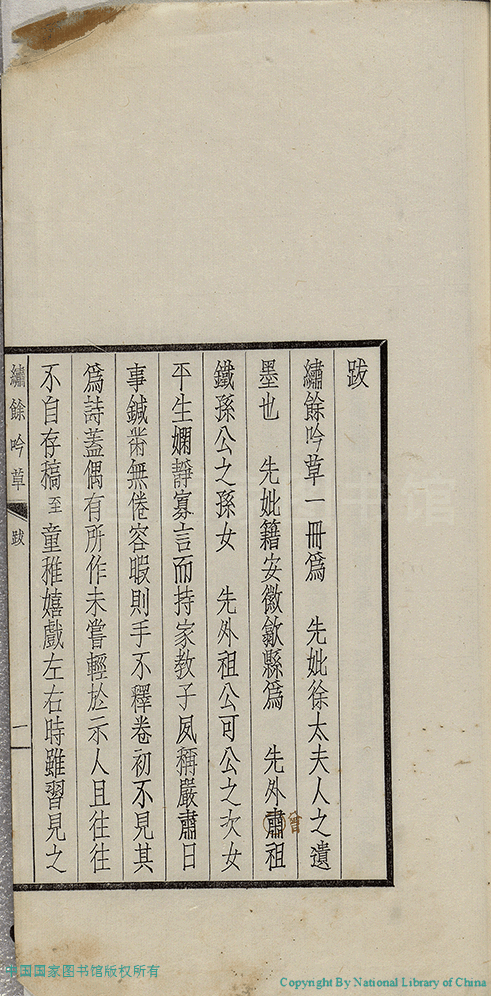 跋
繡餘吟草一冊爲　先妣徐太夫人之遺
墨也　先妣籍安徽歙縣爲　先外肅祖
曾
鐵孫公之孫女　先外祖公可公之次女
平生嫻靜寡言而持家教子夙稱嚴肅日
事鍼黹無倦容暇則手不釋卷初不見其
爲詩蓋偶有所作未嘗輕於示人且往往
不自存稿至童稚嬉戲左右時雖習見之
繡餘吟草　跋　一
中国国家图书馆版权所有
Copyright By National Library of China